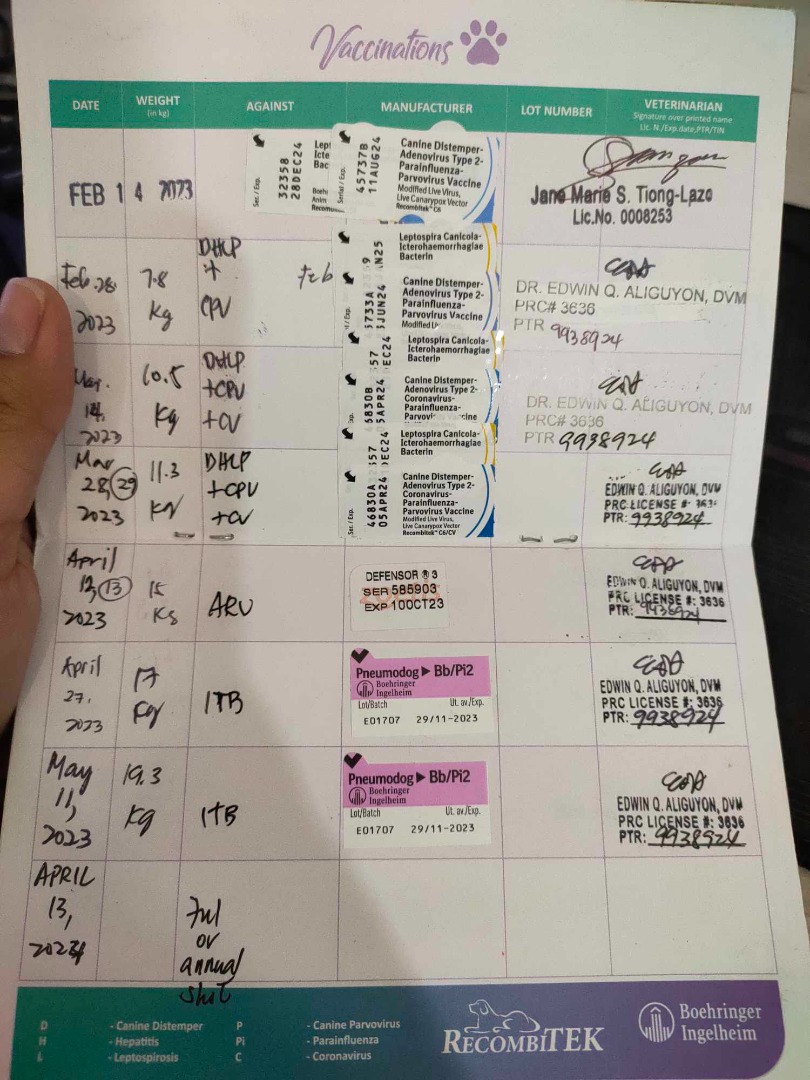 Vaccinations
DATE
WEIGHT
(in kg)
AGAINST
MANUFACTURER
LOT NUMBER
VETERINARIAN
Signature over printed name
Lic. N./Exp.date,PTR/TIN
FEB 14 2023
Ser./Exp.
32358
28DEC24
Lept
Icte
Bac
Boeh
Anim
Recom
Serial/Exp.
45737B
11AUG24
Canine Distemper-
Adenovirus Type 2-
Parainfluenza-
Parvovirus Vaccine
Modified Live Virus,
Live Canarypox Vector
Recombitek C6
Jane Marie S. Tiong-Lazo
Lic.No. 0008253
Feb. 28
2023
7.8
Kg
DHLP
+
CPV
Feb
9
N25
Leptospira Canicola-
Icterohaemorrhagiae
Bacterin
5733A
JUN24
Canine Distemper-
Adenovirus Type 2-
Parainfluenza-
Parvovirus Vaccine
Modified Li
DR. EDWIN Q. ALIGUYON, DVM
PRC# 3636
PTR 9938924
Mar.
14,
2023
10.5
Kg
DHLP
+CPV
+CV
57
EC24
Leptospira Canicola-
Icterohaemorrhagiae
Bacterin
6830B
5APR24
Canine Distemper-
Adenovirus Type 2-
Coronavirus-
Parainfluenza-
Parvovi cine
DR. EDWIN Q. ALIGUYON, DVM
PRC# 3636
PTR 9938924
Mar
28, 29
2023
11.3
Kg
DHLP
+CPV
+CV
57
DEC24
Leptospira Canicola-
Icterohaemorrhagiae
Bacterin
Ser./Exp.
46830A
05APR24
Canine Distemper-
Adenovirus Type 2-
Coronavirus-
Parainfluenza-
Parvovirus Vaccine
Modified Live Virus,
Live Canarypox Vector
Recombitek C6/CV
EDWIN Q. ALIGUYON, DVM
PRC LICENSE #: 363
PTR: 9938924
April
12, 13
2023
15
Ks
ARV
DEFENSOR ® 3
SER 585903
EXP 10OCT23
EDWIN Q. ALIGUYON, DVM
PRC LICENSE #: 3636
PTR: 9938924
April
27,
2023
17
Kg
ITB
Pneumodog ▶ Bb/Pi2
Boehringer
Ingelheim
Lot/Batch
Ut. av./Exp.
E01707 29/11-2023
EDWIN Q. ALIGUYON, DVM
PRC LICENSE #: 3636
PTR: 9938924
May
11,
2023
19.3
Kg
ITB
Pneumodog ▶ Bb/Pi2
Boehringer
Ingelheim
Lot/Batch
Ut. av./Exp.
E01707 29/11-2023
EDWIN Q. ALIGUYON, DVM
PRC LICENSE #: 3636
PTR: 9938924
APRIL
13,
2024
Ful
or
annual
shit
D - Canine Distemper
H - Hepatitis
L - Leptospirosis
P - Canine Parvovirus
Pi - Parainfluenza
C - Coronavirus
RECOMBITEK
Boehringer
Ingelheim